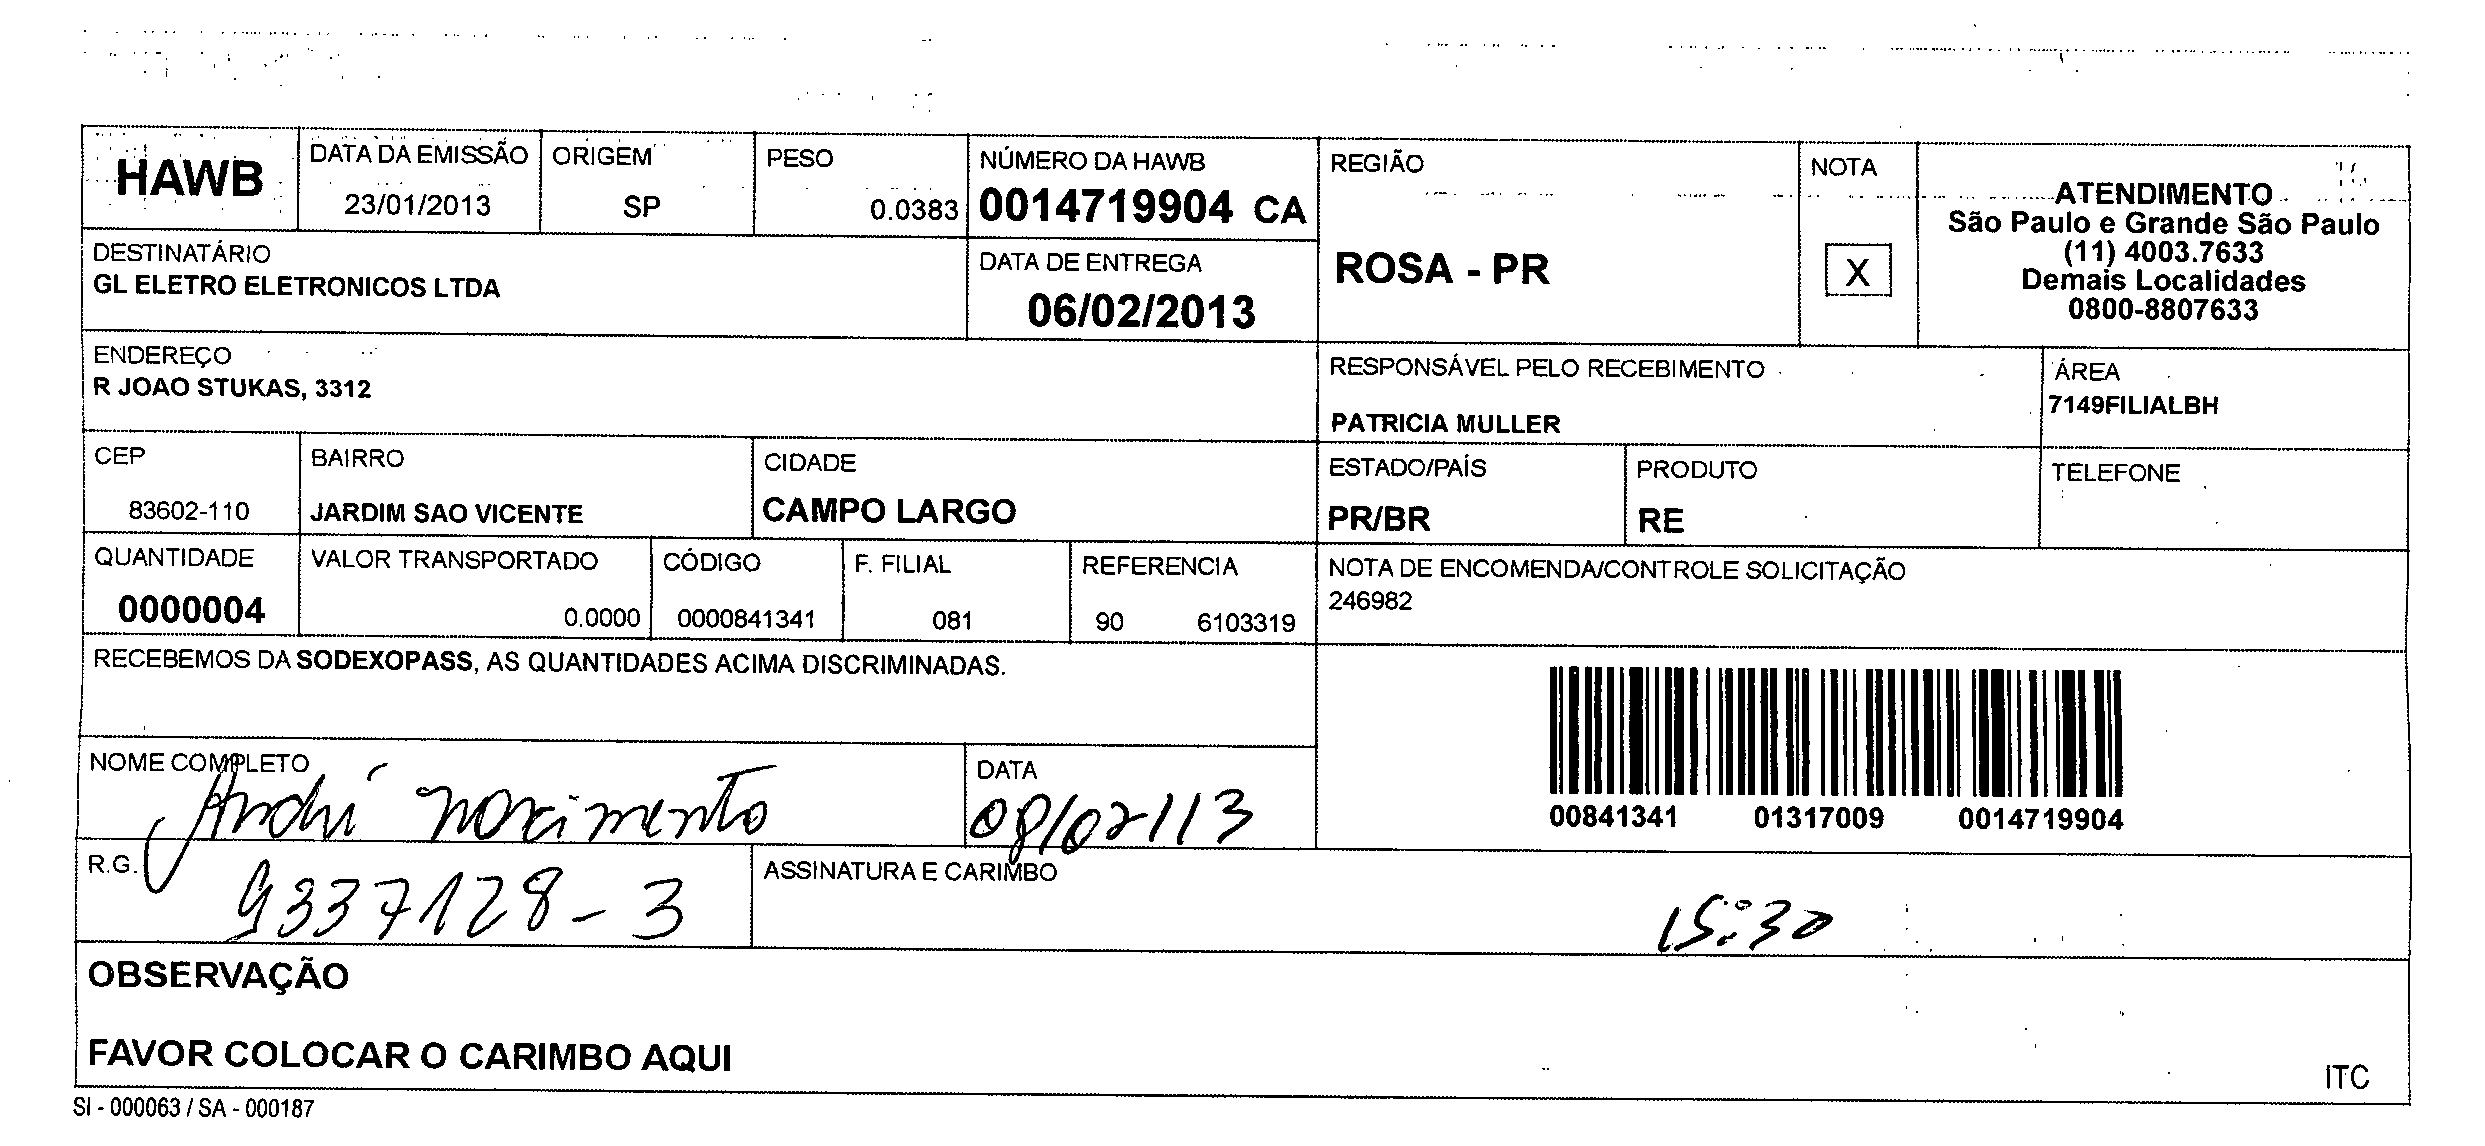 HAWB
DATA DA EMISSÃO
23/01/2013
ORIGEM
SP
PESO
0.0383
NÚMERO DA HAWB
0014719904 CA
REGIÃO
ROSA - PR
NOTA
X
ATENDIMENTO
São Paulo e Grande São Paulo
(11) 4003.7633
Demais Localidades
0800-8807633
DESTINATÁRIO
GL ELETRO ELETRONICOS LTDA
DATA DE ENTREGA
06/02/2013
ENDEREÇO
R JOAO STUKAS, 3312
RESPONSÁVEL PELO RECEBIMENTO
PATRICIA MULLER
ÁREA
7149FILIALBH
CEP
83602-110
BAIRRO
JARDIM SAO VICENTE
CIDADE
CAMPO LARGO
ESTADO/PAÍS
PR/BR
PRODUTO
RE
TELEFONE
QUANTIDADE
0000004
VALOR TRANSPORTADO
0.0000
CÓDIGO
0000841341
F. FILIAL
081
REFERENCIA
90 6103319
NOTA DE ENCOMENDA/CONTROLE SOLICITAÇÃO
246982
RECEBEMOS DA SODEXOPASS, AS QUANTIDADES ACIMA DISCRIMINADAS.
00841341 01317009 0014719904
NOME COMPLETO
André
DATA
08/02/13
R.G.
9337128-3
ASSINATURA E CARIMBO
15:30
OBSERVAÇÃO
FAVOR COLOCAR O CARIMBO AQUI
ITC
SI - 000063 / SA - 000187